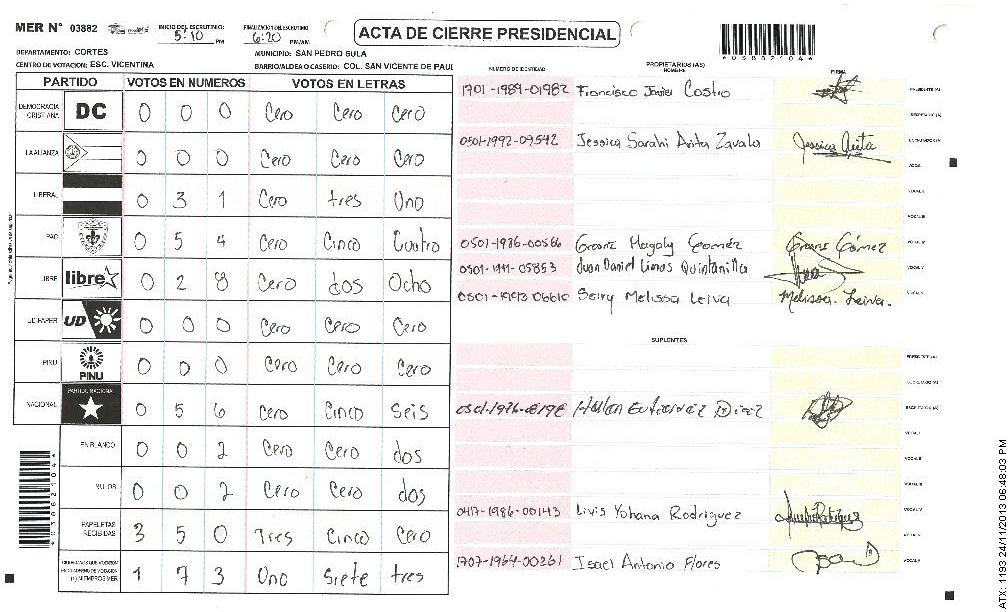 MER N° 03882 INICIO DEL ESCRUTINIO: 5:10 PM FINALIZACION DEL ESCRUTINIO 6:20 PM/AM
ACTA DE CIERRE PRESIDENCIAL
*03882104*
DEPARTAMENTO: CORTES MUNICIPIO: SAN PEDRO SULA
CENTRO DE VOTACION: ESC. VICENTINA BARRIO/ALDEA O CASERIO: COL. SAN VICENTE DE PAUL
PARTIDO VOTOS EN NUMEROS VOTOS EN LETRAS
DEMOCRACIA CRISTIANA DC 0 0 0 Cero Cero Cero
LA ALIANZA 0 0 0 Cero Cero Cero
LIBERAL 0 3 1 Cero tres Uno
PAC 0 5 4 Cero Cinco Cuatro
LIBRE libre 0 2 8 Cero dos Ocho
UD-FAPER UD 0 0 0 Cero Cero Cero
PINU PINU 0 0 0 Cero Cero Cero
NACIONAL PARTIDO NACIONAL 0 5 6 Cero Cinco Seis
EN BLANCO 0 0 2 Cero Cero dos
NULOS 0 0 2 Cero Cero dos
PAPELETAS RECIBIDAS 3 5 0 Tres Cinco Cero
CIUDADANOS QUE VOTARON 1 7 3 Uno Siete tres
(+) MIEMBROS MER
*03882104*
NUMERO DE IDENTIDAD PROPIETARIOS (AS) NOMBRE FIRMA
1701-1989-01982 Francisco Javier Castro PRESIDENTE (A)
SECRETARIO (A)
0501-1992-09542 Jessica Sarahi Arita Zavala Jessica Arita ESCRUTADOR (A)
VOCAL I
VOCAL II
VOCAL III
0501-1986-00566 Magaly Gomez Gómez VOCAL IV
05853 Juan Daniel Limas Quintanilla VOCAL V
Melissa Leiva Melissa. Leiva.
SUPLENTES
PRESIDENTE (A)
SECRETARIO (A)
Gutierrez ESCRUTADOR (A)
VOCAL I
VOCAL II
VOCAL III
0417-1986-00143 Livis Yohana Rodriguez VOCAL IV
VOCAL V
1707-1964-00261 Isael Antonio Flores
ATX: 1193 24/11/2013 06:48:03 PM